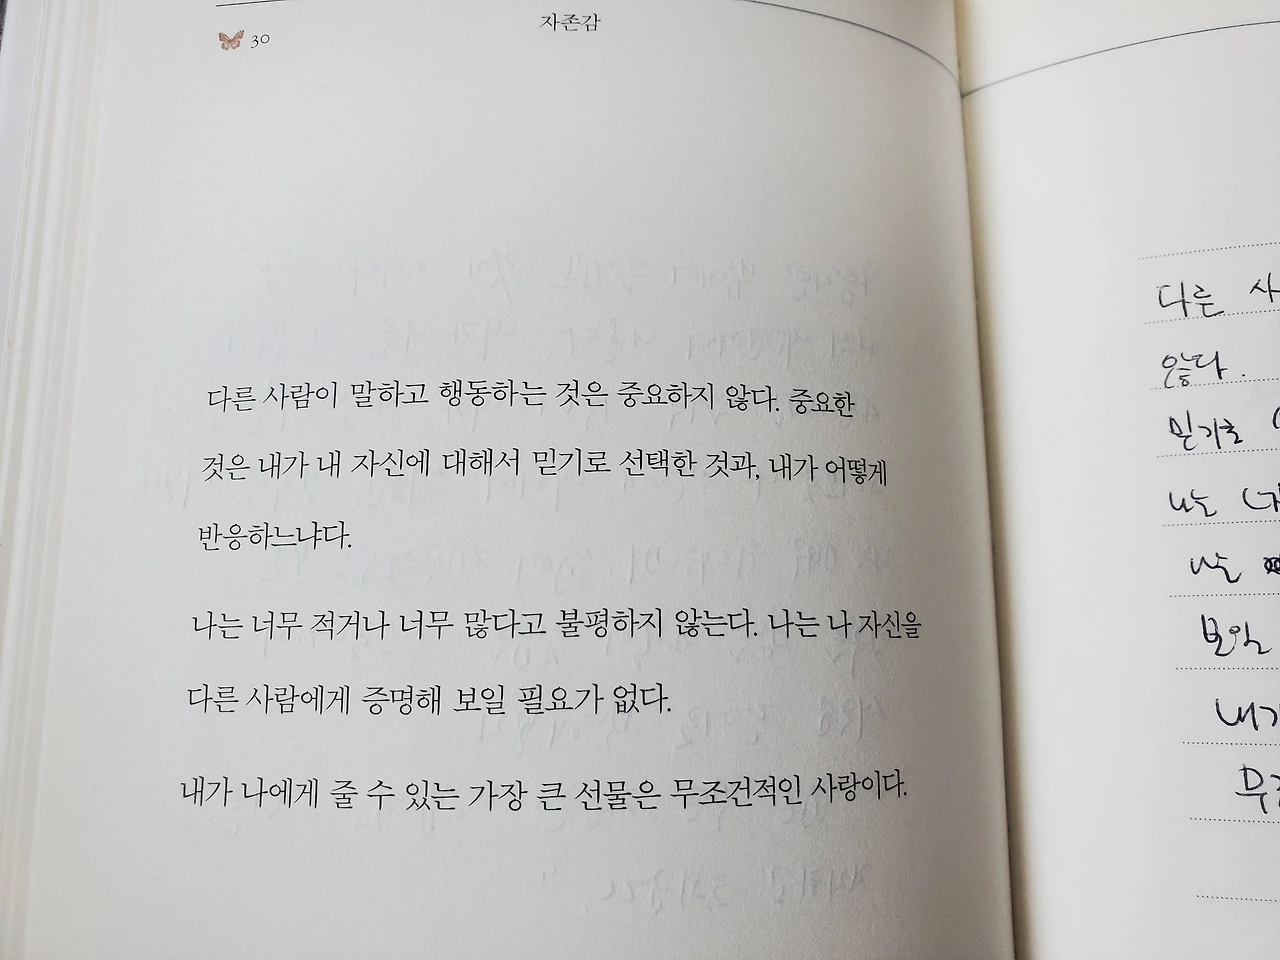 자존감
30
다른 사람이 말하고 행동하는 것은 중요하지 않다. 중요한
것은 내가 내 자신에 대해서 믿기로 선택한 것과, 내가 어떻게
반응하느냐다.
나는 너무 적거나 너무 많다고 불평하지 않는다. 나는 나 자신을
다른 사람에게 증명해 보일 필요가 없다.
내가 나에게 줄 수 있는 가장 큰 선물은 무조건적인 사랑이다.
다른 사
않다.
믿기로
나는
나는
보일
내가
무조